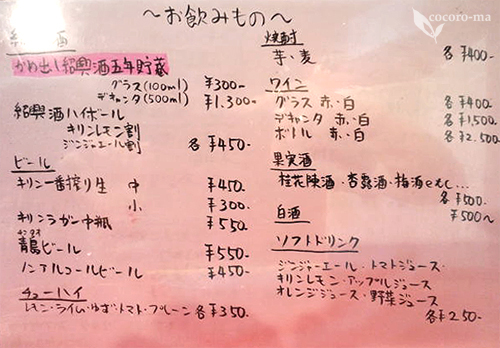 ～お飲みもの～
cocoro-ma
紹興酒
かめ出し紹興酒五年貯蔵
グラス(100ml) ¥300-
デキャンタ(500ml) ¥1.300-
紹興酒ハイボール
キリンレモン割
ジンジャエール割 各¥450-
ビール
キリン一番搾り生 中 ¥450-
小 ¥300-
キリンラガー中瓶 ¥550-
チンタオ
青島ビール ¥550-
ノンアルコールビール ¥450-
チューハイ
レモン・ライム・ゆず・トマト・プレーン 各¥350-
焼酎
芋・麦 各¥400-
ワイン
グラス 赤・白 各¥400-
デキャンタ 赤・白 各¥1,500-
ボトル 赤・白 各¥2.500-
果実酒
桂花陳酒・杏露酒・梅酒 etc...
各¥500-
白酒 ¥500～
ソフトドリンク
ジンジャーエール・トマトジュース・
キリンレモン・アップルジュース
オレンジジュース・野菜ジュース
各¥250-